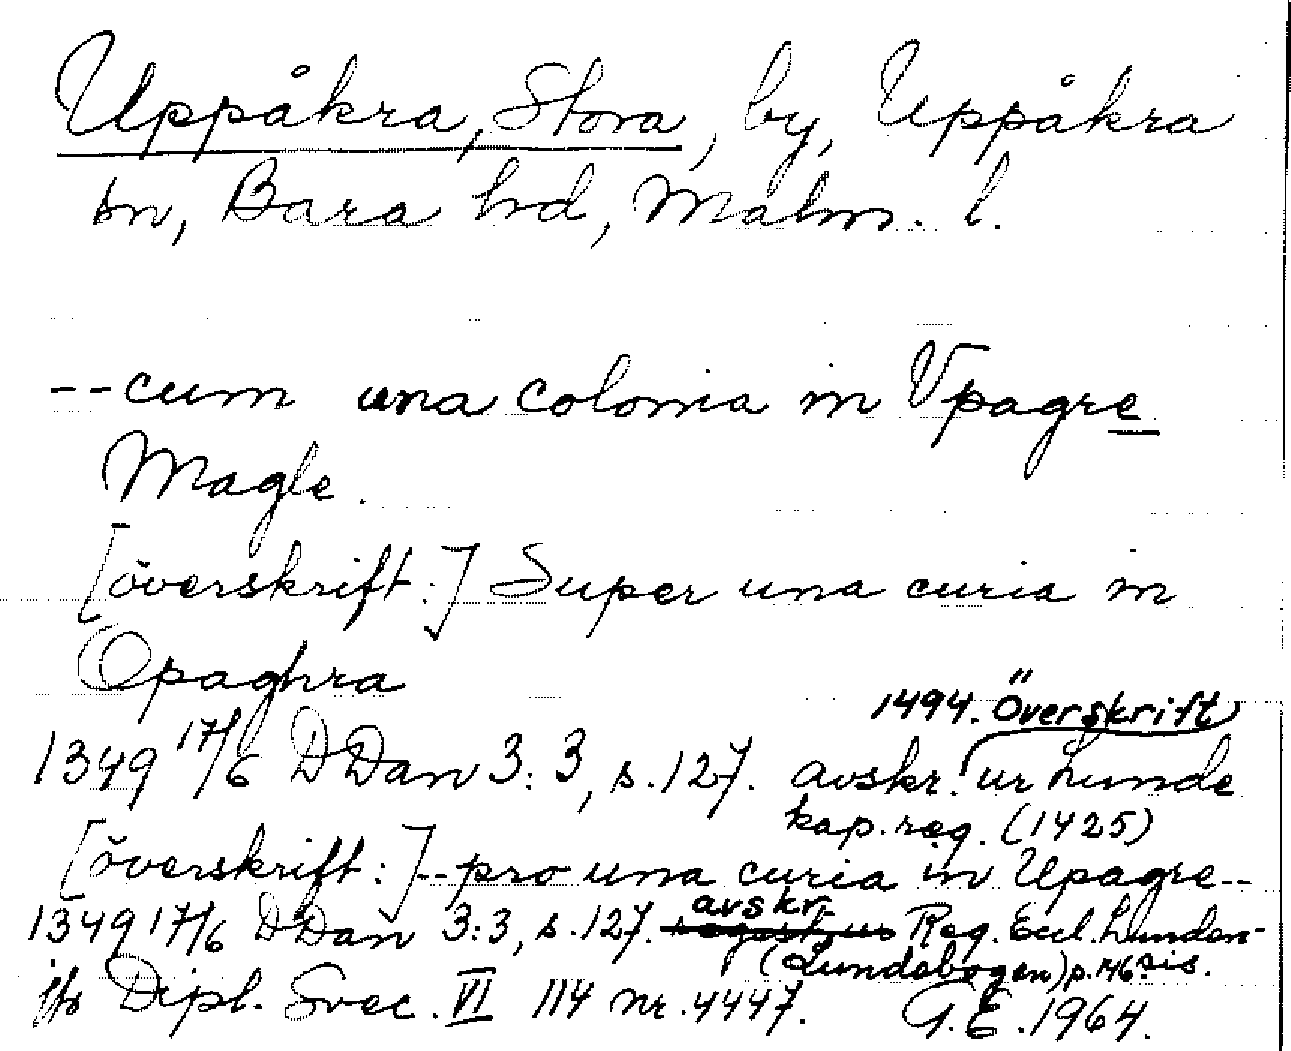 Uppåkra, Stora, by, Uppåkra
sn, Bara hd, Malm. l.
--cum una colonia in Vpagre
Magle.
[överskrift:] Super una curia in
Opaghra
1494. Överskrift
1349 17/6 DDan 3:3, s.127. avskr. ur Lunde
kap.reg. (1425)
[överskrift:]--pro una curia in Upagre--
avskr.
1349 17/6 DDan 3:3, s.127. Reg. Eccl. Lunden-
(Lundebogen) p.146 sis.
jfr Dipl. Svec. VI 114 nr.4447. G.E.1964.